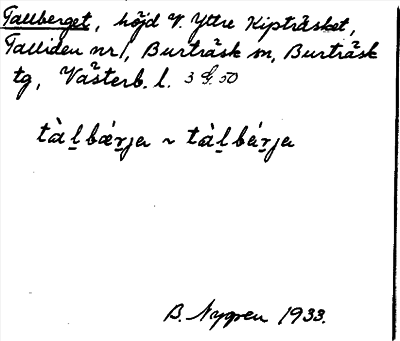 Tallberget, höjd V. Yttre Kipträsket,
Talliden nr 1, Burträsk sn, Burträsk
tg, Västerb. l. 3 G. 50
tàḻbǽṟja ~ tàḻbáṟja
B. Nygren 1933.